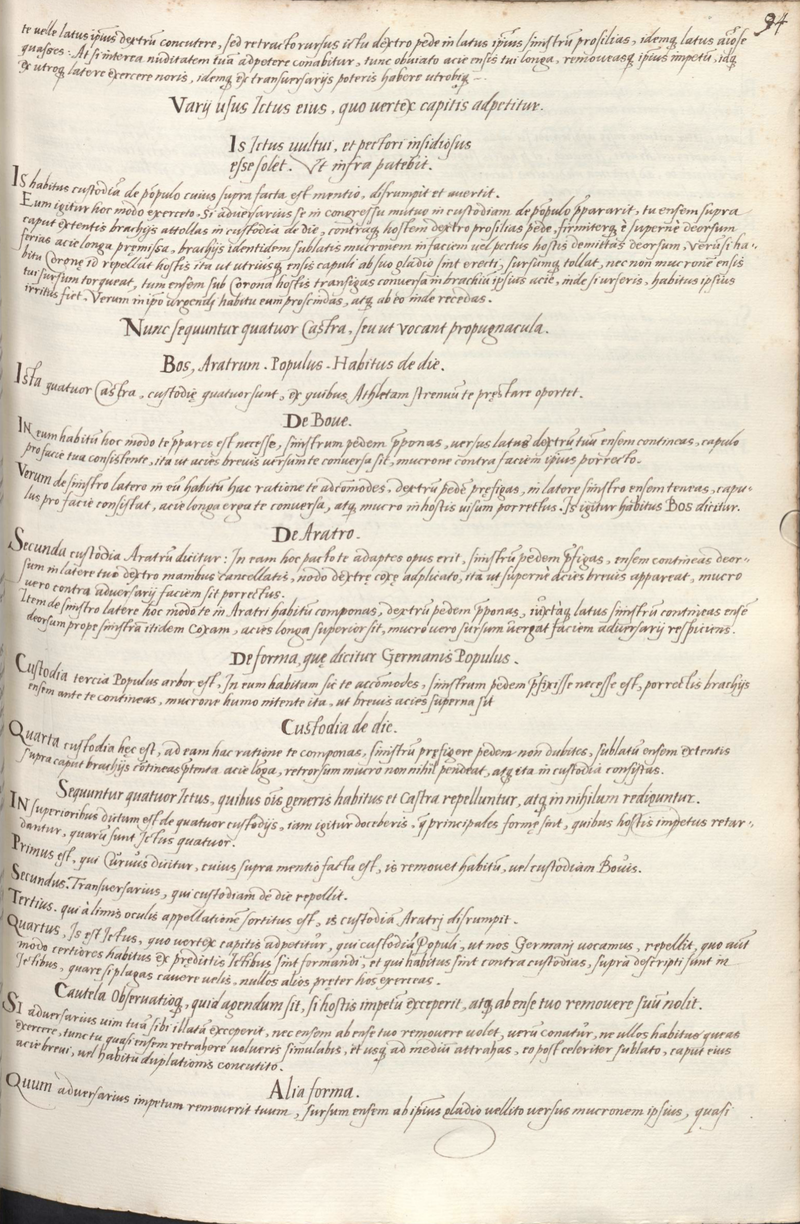 94
te velle latus ipsius dextrū concutere, sed retracto rursus ictu dextro pede in latus ipsius sinistrū prosilias, idemq latus
quasses: At si interea nuditatem tuā adpetere conabitur, tunc obuiato acie ensis tui longa, remoueasq ipsius impetū, idq
ex utroq latere exercere noris, idemq ex transuersarijs poteris habere utrobiq.
Varij usus Ictus eius, quo uertex capitis adpetitur.
Is Ictus uultui, et pectori insidiosus
esse solet. Vt infra patebit.
Is habitus custodiā de populo cuius supra facta est mentio, disrumpit et auertit.
Eum igitur hoc modo exerceto. Si aduersarius se in congressu mutuo in custodiam de populo ꝑpararit, tu ensem supra
caput extentis brachijs attollas in custodia de die, contraq hostem dextro prosilias pede, firmiterq è supernè deorsum
ferias acie longa premissa, brachijs itidem sublatis mucronem in faciem uel pectus hostis demittas deorsum, Verū si ha-
bitu Coronę id repellat hostis ita ut utriusq ensis capuli ab suo gladio sint erecti, sursumq tollat, nec non mucronē ensis
tui sursum torqueat, tum ensem sub Corona hostis transigas conuersa in brachiū ipsius acie, inde si urseris, habitus ipsius
irritus fiet. Verum in ipso urgendj habitu eum proscindas, atq ab eo inde recedas.
Nunc sequuntur quatuor Castra, seu ut vocant propugnacula.
Bos, Aratrum. Populus. Habitus de die.
Ista quatuor Castra, custodię quatuor sunt, ex quibus Athletam strenuū te pręstare oportet.
De Boue.
In eum habitū hoc modo te ꝑpares est necesse, sinistrum pedem ꝓponas, versus latus dextrū tuū ensem contineas, capulo
pro facie tua consistente, ita ut acies breuis uersum te conuersa sit, mucrone contra faciem ipsius porrecto.
Verum de sinistro latere in eū habitū hac ratione te adcōmodes. dextrū pedē pręfigas, in latere sinistro ensem teneas, capu-
lus pro facie consistat, acie longa erga te conuersa, atq mucro in hostis uisum porrectus. Is igitur habitus Bos dicitur.
De Aratro.
Secunda custodia Aratrū dicitur: In eam hoc pacto te adaptes opus erit, sinistrū pedem ꝓfigas, ensem contineas deor-
sum in latere tuo dextro manibus cancellatis, nodo dextrę coxę adplicato, ita ut supernè acies breuis appareat, mucro
uero contra aduersarij faciem sit porrectus.
Item de sinistro latere hoc modo te in Aratri habitū componas, dextrū pedem ꝓponas, iuxtaq latus sinistrū contineas ensē
deorsum prope sinistrā itidem Coxam, acies longa superior sit, mucro uero sursum uergat faciem aduersarij respiciens.
De forma, quę dicitur Germanis Populus.
Custodia tercia Populus arbor est, In eum habitum sic te accōmodes, sinistram pedem ꝓfixisse necesse est, porrectis brachijs
ensem ante te contineas, mucrone humo nitente ita, ut breuis acies superna sit
Custodia de die.
Quarta custodia hęc est, ad eam hac ratione te componas, sinistrū pręfigere pedem non dubites, sublatū ensem extentis
supra caput brachijs cōtineas ꝓtenta acie lōga, retrorsum mucro non nihil pendeat, atq ita in custodia consistas.
Sequuntur quatuor Ictus, quibus oīs generis habitus et Castra repelluntur, atq in nihilum rediguntur.
In superioribus dictum est de quatuor custodijs, iam igitur doceberis, q principales formę sint, quibus hostis impetus retar-
dantur, quarū sunt Ictus quatuor.
Primus est, qui Curuus dicitur, cuius supra mentio facta est, is remouet habitū, uel custodiam Bouis.
Secundus. Transuersarius, qui custodiam de die repellit.
Tertius. qui à limis oculis appellationē sortitus est, is custodiā Aratrj disrumpit.
Quartus, Is est Ictus, quo uertex capitis adpetitur, qui custodiā Populi, ut nos Germanj uocamus, repellit, quo aūt
modo certiores habitus ex prędictis Ictibus sint formandi, et qui habitus sint contra custodias, supra descripti sunt in
Ictibus, quare si plagas cauere uelis, nullos alios pręter hos exerceas.
Cautela Obseruatioq, quid agendum sit, si hostis impetū exceperit, atq ab ense tuo remouere suū nolit.
Si aduersarius uim tuā sibi illatā exceperit, nec ensem ab ense tuo remouere uolet, uerū conatur, ne ullos habitus queas
exercere, tunc tu quasi ensem retrahere uolueris simulabis, et usq ad mediū attrahas, eo post celeriter sublato, caput eius
acie breui, uel habitu duplationis concutito.
Alia forma.
Quum aduersarius impetum remouerit tuum, sursum ensem ab ipsius gladio vellito uersus mucronem ipsius, quasi